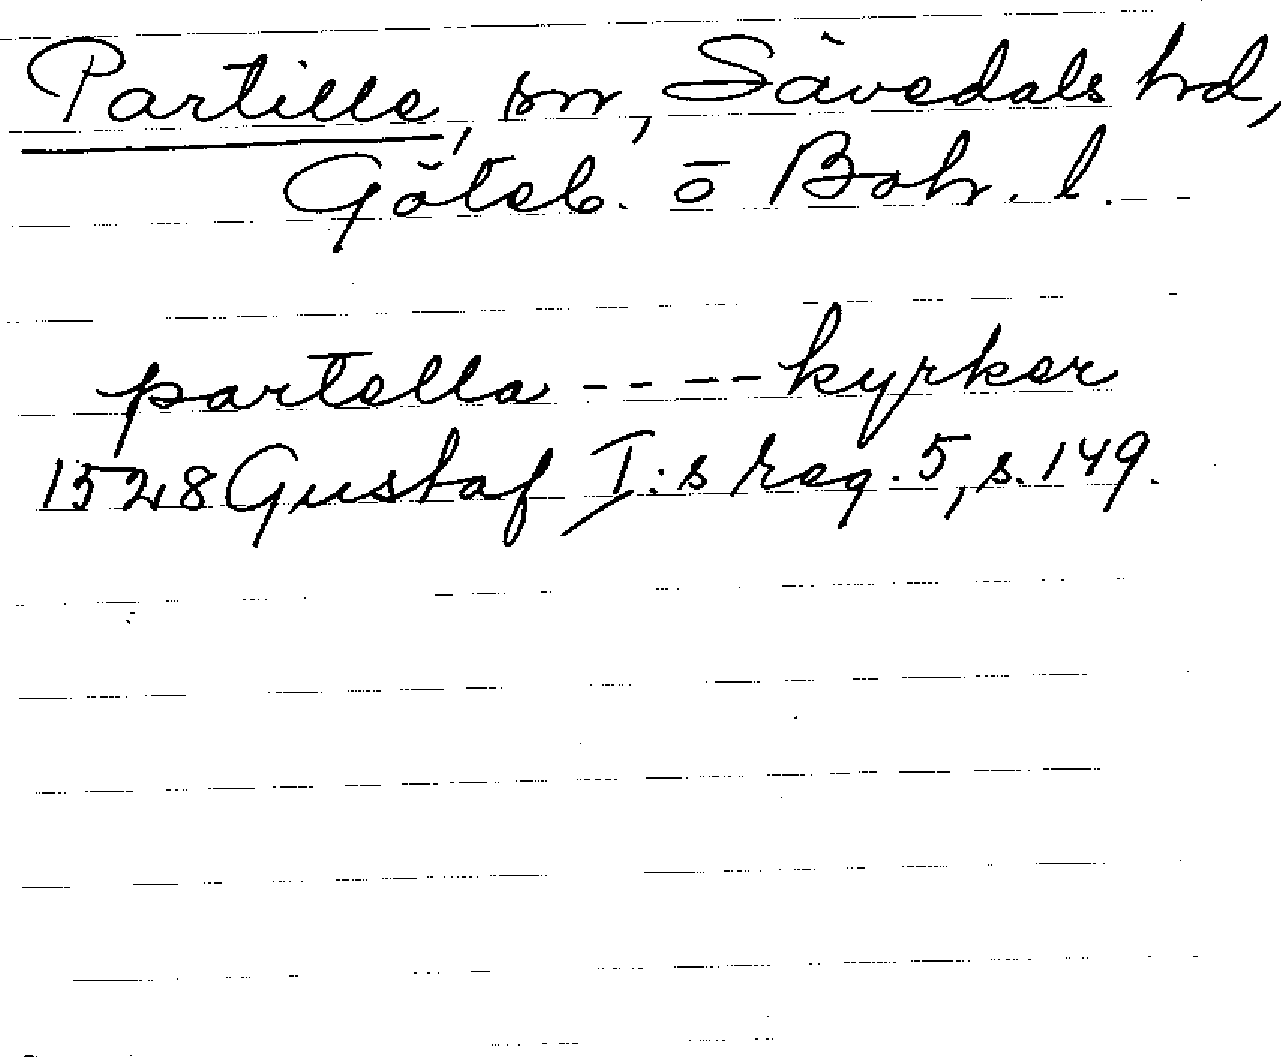 Partille, sn, Sävedals hd,
Göteb. o Boh. l.
partella - - - - kyrker
1528 Gustaf I:s reg. 5, s. 149.